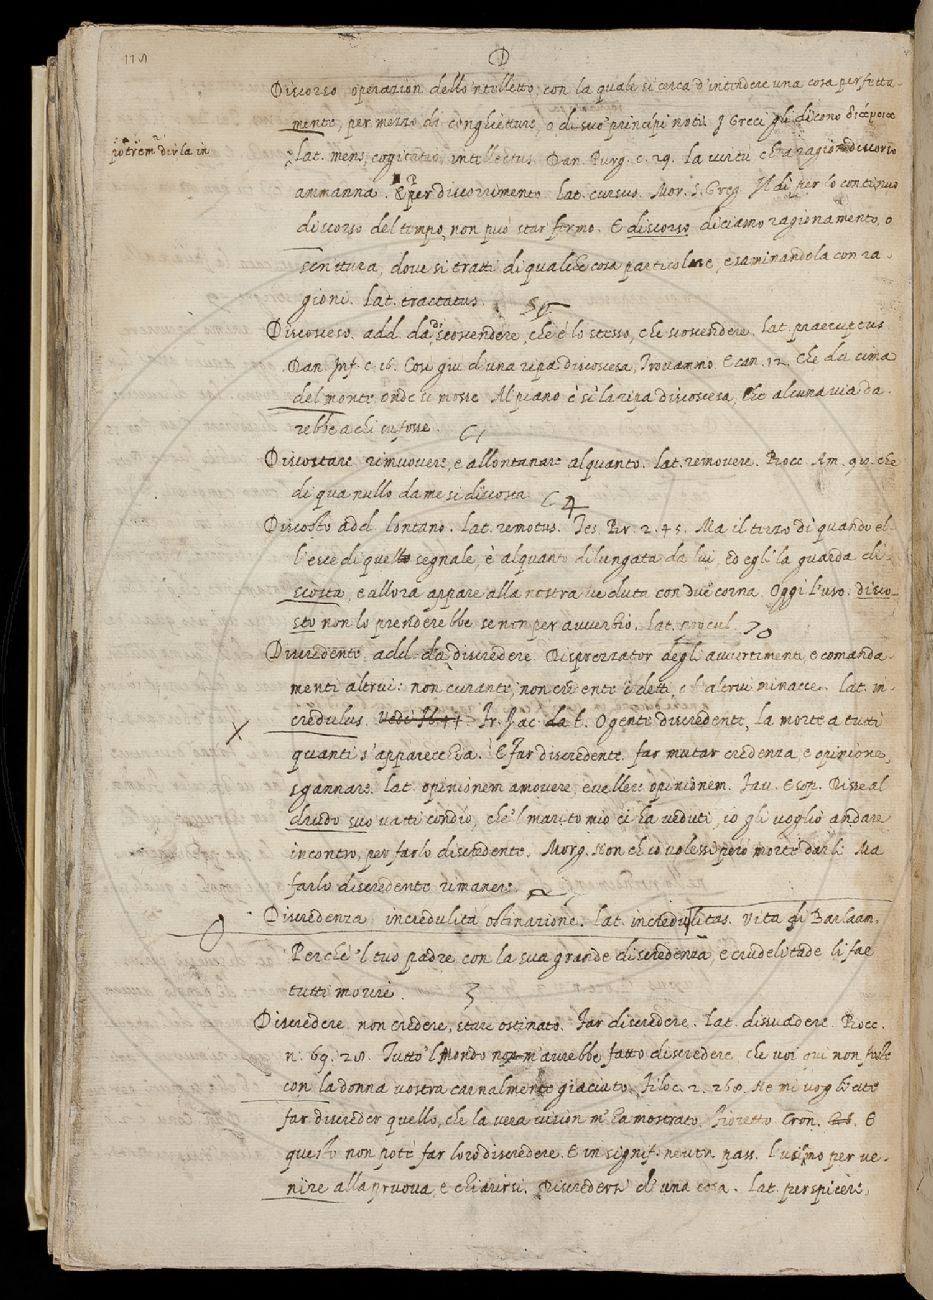 D
Discorso. operazion dello 'ntelletto, con la quale si cerca d'intendere una cosa perfetta-
mente, per mezzo di conghietture, o di suo' principi noti. I Greci gli dicono
potrem dirla in
Lat. mens, cogitatio, intellectus. Dan. Purg. c. 29. la virtù ch'a ragion discorso
ammanna. E per discorrimento. lat. cursus. Mor. S. Greg. Il dì per lo continuo
discorso del tempo, non può star fermo. E discorso diciamo ragionamento, o
scrittura, dove si tratti di qualche cosa particolare, esaminandola con ra-
gioni. Lat. tractatus.
Discosceso. add. da discoscendere, che è lo stesso, che scoscendere. Lat. praeruptus
Dan. Inf. c. 16. Così giù d'una ripa discoscesa, Trovammo. E can. 12. Che da cima
del monte, onde si mosse Al piano è sì la ripa discoscesa, Che alcuna via da-
rebbe a chi su fosse.
Discostare. rimuovere, e allontanare alquanto. lat. removere. Bocc. Am. 90. che
di qua nullo da me si discosta
Discosto add. lontano. Lat. remotus. Tes. Br. 2. 45. Ma il terzo dì quando el-
l'esce di quello segnale, è alquanto dilungata da lui, ed egli la guarda di-
scosta, e allora appare alla nostra veduta con due corna. Oggi l'uso. disco-
sto non lo prenderebbe se non per avverbio. Lat. procul. 70
Discredente. add. da discredere Disprezzator degli avvertimenti, e comanda-
menti altrui: non curante, non credente i detti, e l'altrui minacce. lat. in-
credulus. Fr. Iac. da t. O gente discredente, la morte a tutti
quanti s'apparecchia. E far discredente. far mutar credenza, e opinione,
sgannare. lat. opinionem amovere, evellere opinionem. Fav. Esop. Disse al
drudo suo vatti con dio, che 'l marito mio ci ha veduti, io gli voglio andare
incontro, per farlo discredente. Morg. Non ch'io volessi però morte darli Ma
farlo discredente rimanere.
Discredenza. incredulità ostinazione. lat. incredulitas. Vita di Barlaam.
Perchè 'l tuo padre con la sua grande discredenza, e crudelitade li fae
tutti morire. 3
Discredere. non credere, stare ostinato. Far discredere. Lat. dissuadere. Bocc.
n. 69. 28. Tutto 'l Mondo non m'avrebbe fatto discredere, che voi qui non foste
con la donna vostra carnalmente giaciuto. Filoc. 2. 260. Ne mi vogliate
far discreder quello, che la vera vision m'ha mostrato. Fioretto Cron. E
questo non potè far loro discredere. E in signif. neutr. pass. l'usiamo per ve-
nire alla pruova, e chiarirsi. Discredersi d'una cosa. Lat. perspicere,